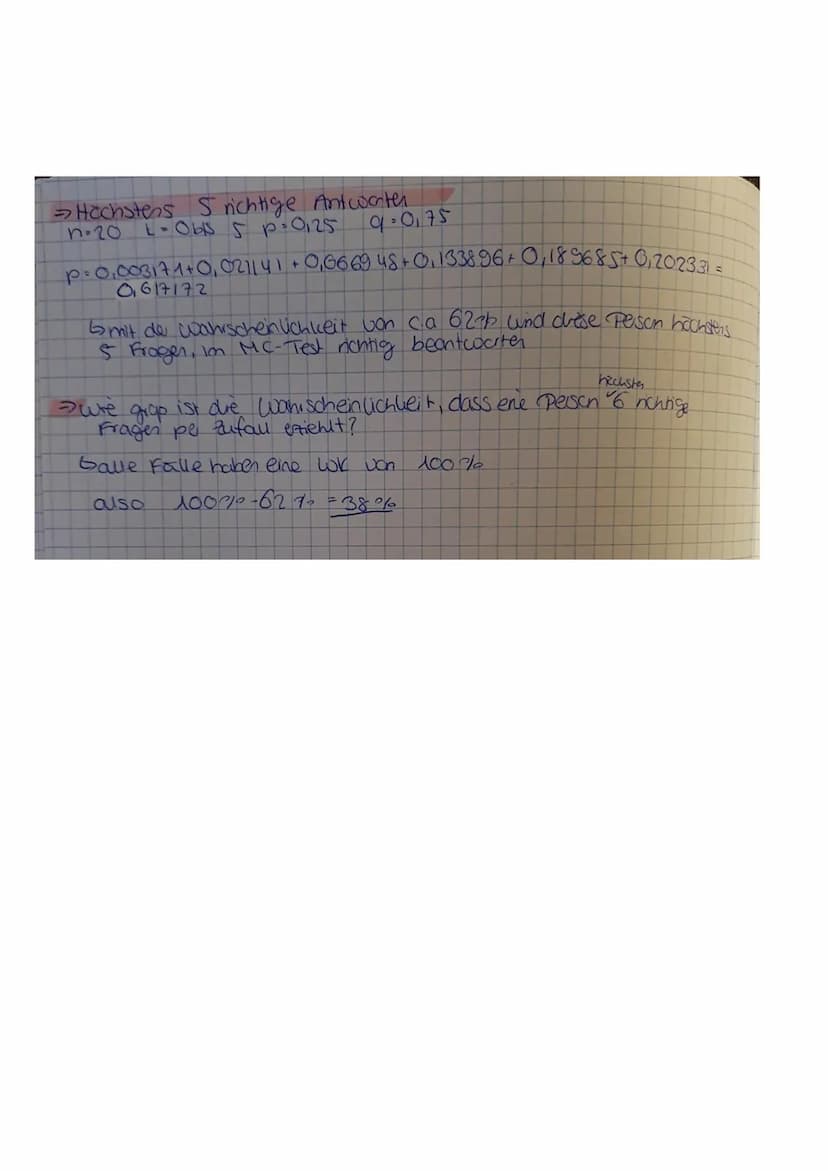 ⇒ Höchstens 5 richtige Antworten
n=20 k=0 bis 5 p=0,25 q=0,75
p=0,003171+0,021141+0,066948+0,133896+0,189685+0,202331=
0,617172
↳ mit der Wahrscheinlichkeit von c.a 62% wird diese Person höchstens
5 Fragen, im MC-Test richtig beantworten
höchsten
⇒ Wie groß ist die Wahrscheinlichkeit, dass eine Person 6 richtige
Fragen per Zufall erziehlt?
↳ alle Fälle haben eine WK von 100%
also 100%-62% =38%